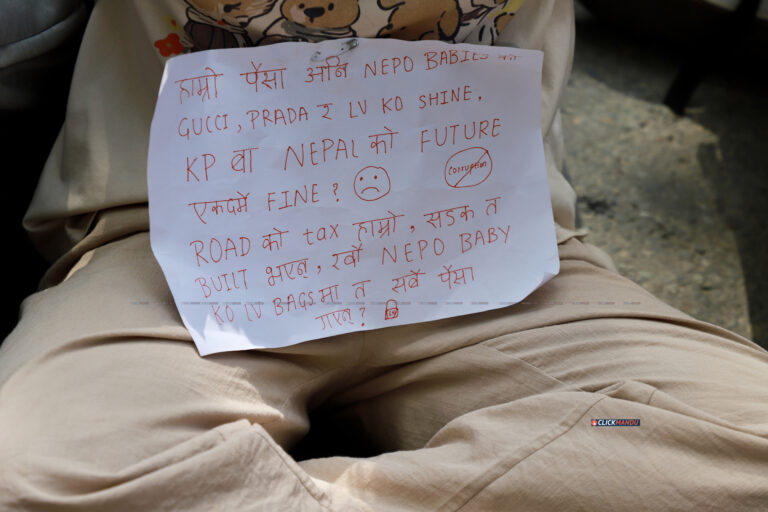 हाम्रो पैसा अनि NEPO BABIES
GUCCI, PRADA र LV KO SHINE,
KP बा NEPAL को FUTURE
एकदमै FINE?
CORRUPTION
ROAD को tax हाम्रो, सडक त
BUILT भएन, खै NEPO BABY
KO LV BAGS मा त सबै पैसा
गएन?
CLICKMANDU